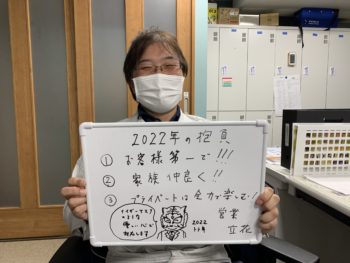 2022年の抱負
① お客様第一で!!!
② 家族仲良く!!
③ プライベートは全力で楽しむ!
2022
トラ年
営業
立花